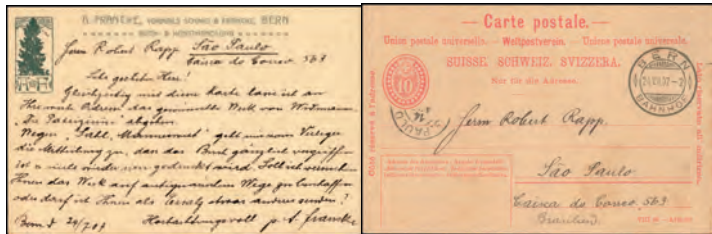 A. FRANCKE, VORMALS SCHMID & FRANCKE, BERN
Herrn Robert Rapp São Paulo
Caixa do Correo 563
Sehr geehrter Herr!
Gleichzeitig mit dieser Karte lasse ich an
Ihre werte Adresse das gewünschte Werk von Widmann
"Die Patrizierin" abgehen.
Wegen "Sall. Mannermut" geht mir vom Verleger
die Mitteilung zu, dass das Buch gänzlich vergriffen
ist u. nicht wieder neu gedruckt wird. Soll ich versuchen
Ihnen das Werk auf antiquarischem Wege zu beschaffen
oder darf ich Ihnen als Ersatz etwas anderes senden?
Bern d. 24/7.07 Hochachtungsvoll p. A. Francke
Carte postale.
Union postale universelle. Weltpostverein. Unione postale universale.
SUISSE. SCHWEIZ. SVIZZERA.
Nur für die Adresse.
10
BERN
BAHNHOF
S. PAULO
Côté réservé à l'adresse.
Herrn Robert Rapp.
São Paulo
Caixa do Correo 563
Brasilien